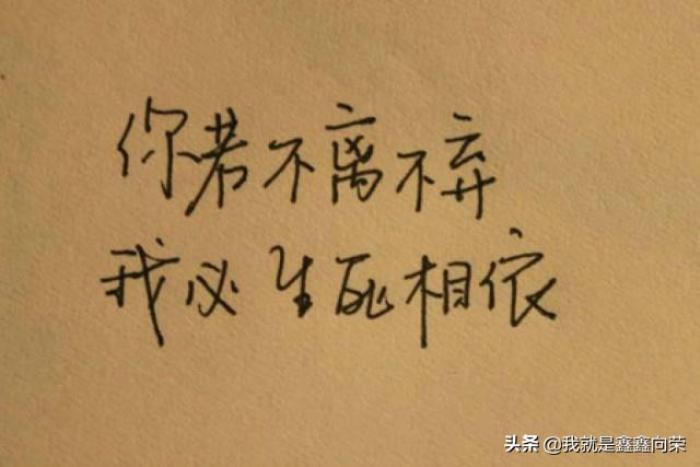 你若不离不弃
我必生死相依
头条 @我就是鑫鑫向荣